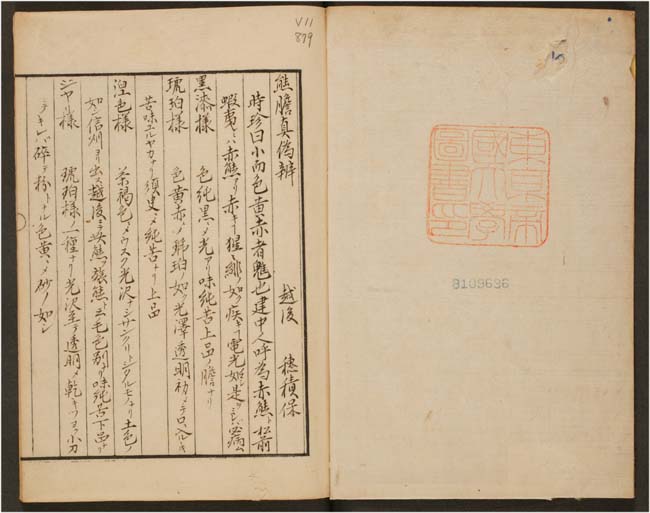 V11
879
熊膽真偽辨 越後 穂積保
時珍曰小而色黄赤者魋也建中人呼為赤熊ト松前
蝦夷 赤熊アリ赤キ 猩々緋ノ如ク疾キ 電光ノ如シ是ヲ 必病ム
黒漆様 色純黒ニメ光アリ味純苦上品ノ膽ナリ
琥珀様 色黄赤ニメ琥珀ノ如ク光澤透明初メテ口ニ入
苦味ユルヤカナリ須臾ニメ純苦ナリ上品
湟色様 茶褐色ニメウスク光沢ナシ シタルモノナリ土色ノ
如シ信州ヨリ出越後ニテ 熊 毛色別ナリ味純苦下品ナリ
ジヤリ様 琥珀様ノ一種ナリ光沢至テ透明ニメ乾キツヨク小刀
ニテキレバ碎テ粉トナル色黄ニメ砂ノ如シ
東京帝
國大學
圖書印